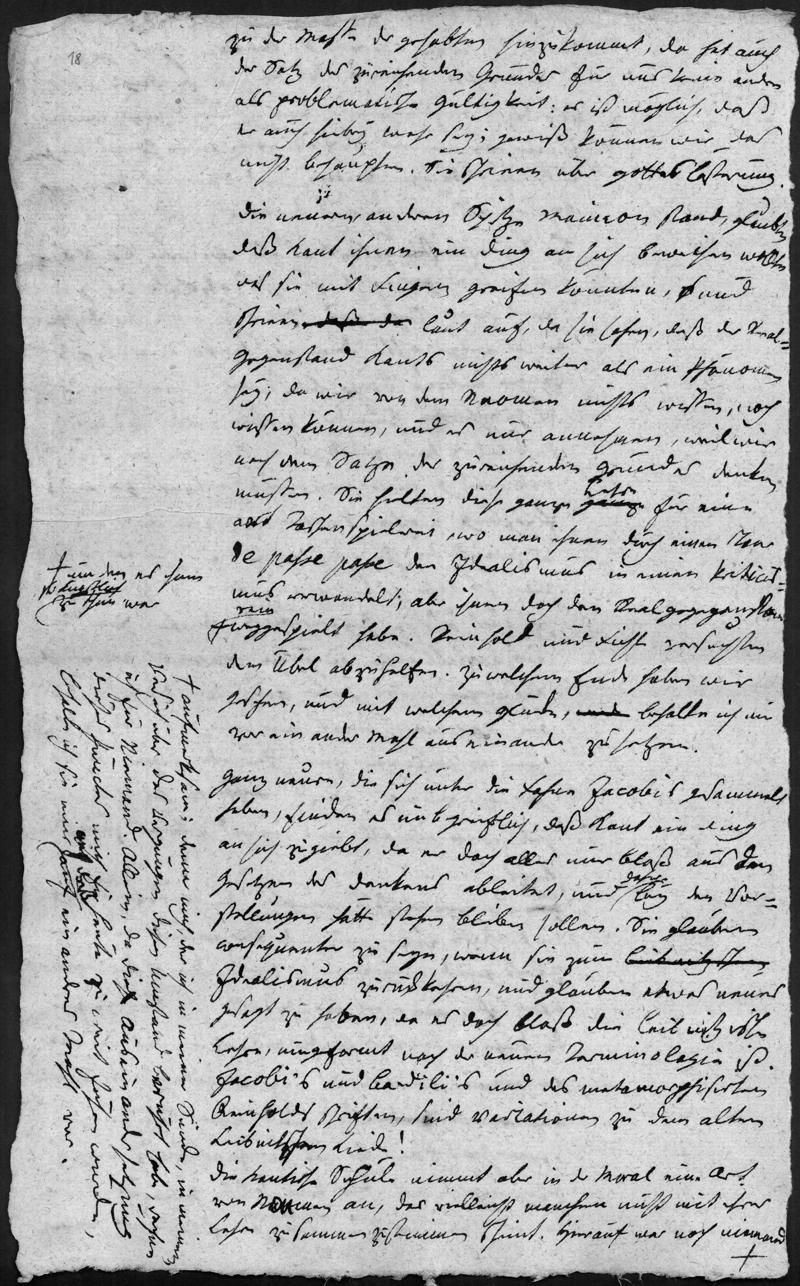 18
zu der Masse der gehabten hinzukommt, da hat auch
der Satz des zureichenden Grundes für uns kein andre
als problematische Gültigkeit: es ist möglich, daß
er auch hiebey wahr sey; gewiß können wir das
nicht behaupten. Sie schrieen über Gotteslästerung.
Die neuern, an deren Spitze Maimon stand, glaubten
daß Kant ihnen ein Ding an sich beweisen wollte
das sie mit Fingern greifen könnten, und
schrieen daß da laut auf, da sie sahen, daß der Real-
gegenstand Kants nichts weiter als ein Phänomen
sey; da wir von dem Noumen nichts wissen, noch
wissen können, und es nur annehmen, weil wir
nach dem Satze des zureichenden Grundes denken
müssen. Sie hielten diese ganze Lehre für eine
Taschenspielerei, wo man ihnen durch einen
de passe passe den Idealismus in einen Kriticis-
mus verwandelt; aber ihnen doch den Realgegenstand
rein weggespielt habe. Reinhold und Fichte versuchten
dem Übel abzuhelfen. Zu welchem Ende haben wir
gesehen, und mit welchem Glücke, und behalte ich mir
vor ein ander Mahl auseinander zu setzen.
Ganz neuere, die sich unter die Fahne Jacobis gesammelt
haben, finden es unbegreiflich, daß Kant ein Ding
an sich zugiebt, da er doch alles nur bloß aus den
Gesetzen des Denkens ableitet, und daher bey den Vor-
stellungen hätte stehen bleiben sollen. Sie glauben
consequenter zu seyn, wenn sie zum Leibnitzschen
Idealismus zurückkehren, und glauben etwas neues
gesagt zu haben, da es doch bloß die Leibnitzische
Lehre, umgeformt nach der neuen Terminologie ist.
Jacobi's und Bardili's und des metamorphisirten
Reinholds Schriften, sind Variationen zu dem alten
Leibnitzschen Liede!
Die kantische Schule nimmt aber in der Moral eine Art
von Noumen an, das vielleicht manchem nicht mit ihrer
Lehre zusammen zustimmen scheint. Hierauf war noch niemand
+
+ um den es ihnen
zu thun war
+ aufmerksam; denn auch der ich in meiner
über das Vergnügen diesen Umstand berührt habe,
für Niemand. Allein, da diese Auseinandersetzung
mich heute zu weit führen würde,
behalte ich sie mir auf ein anderes Mahl vor.